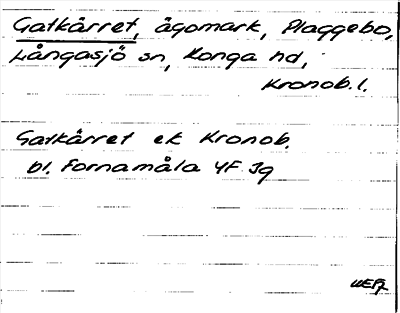 Gatkärret, ägomark, Plaggebo,
Långasjö sn, Konga hd,
Kronob. l.
Gatkärret ek Kronob.
bl. Fornamåla 4F Jg